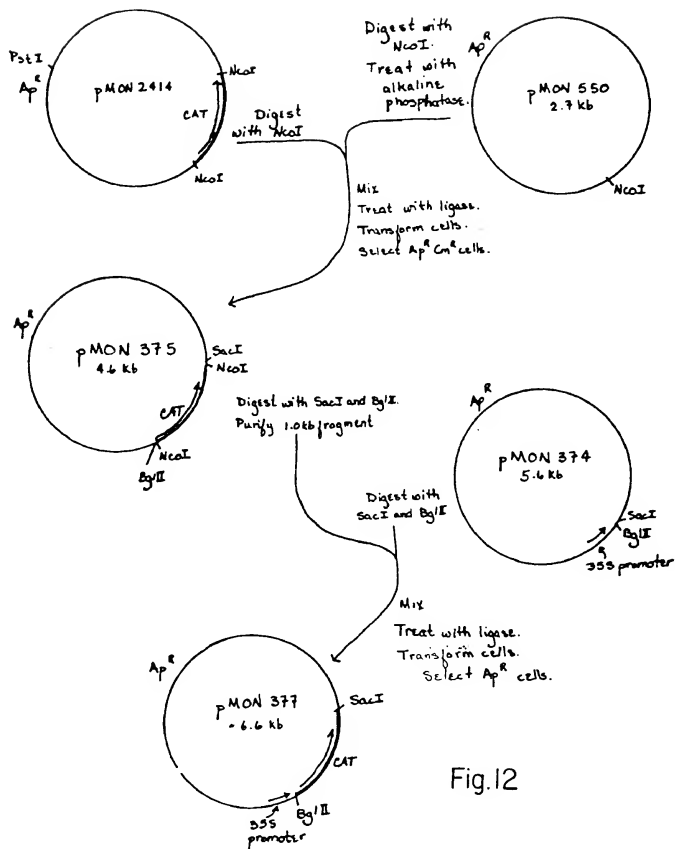 PstI
Ap^R
pMON 2414
NcoI
CAT
NcoI
Digest
with NcoI
Digest with
NcoI.
Treat with
alkaline
phosphatase.
Ap^R
pMON 550
2.7 kb
NcoI
Mix
Treat with ligase.
Transform cells.
Select Ap^R Cm^R cells.
Ap^R
pMON 375
4.6 kb
SacI
NcoI
CAT
NcoI
BglII
Digest with SacI and BglII.
Purify 1.0kb fragment
Ap^R
pMON 374
5.6 kb
SacI
BglII
35S promoter
Digest with
SacI and BglII
Mix
Treat with ligase.
Transform cells.
Select Ap^R cells.
Ap^R
pMON 377
~6.6 kb
SacI
CAT
BglII
35S
promoter
Fig.12